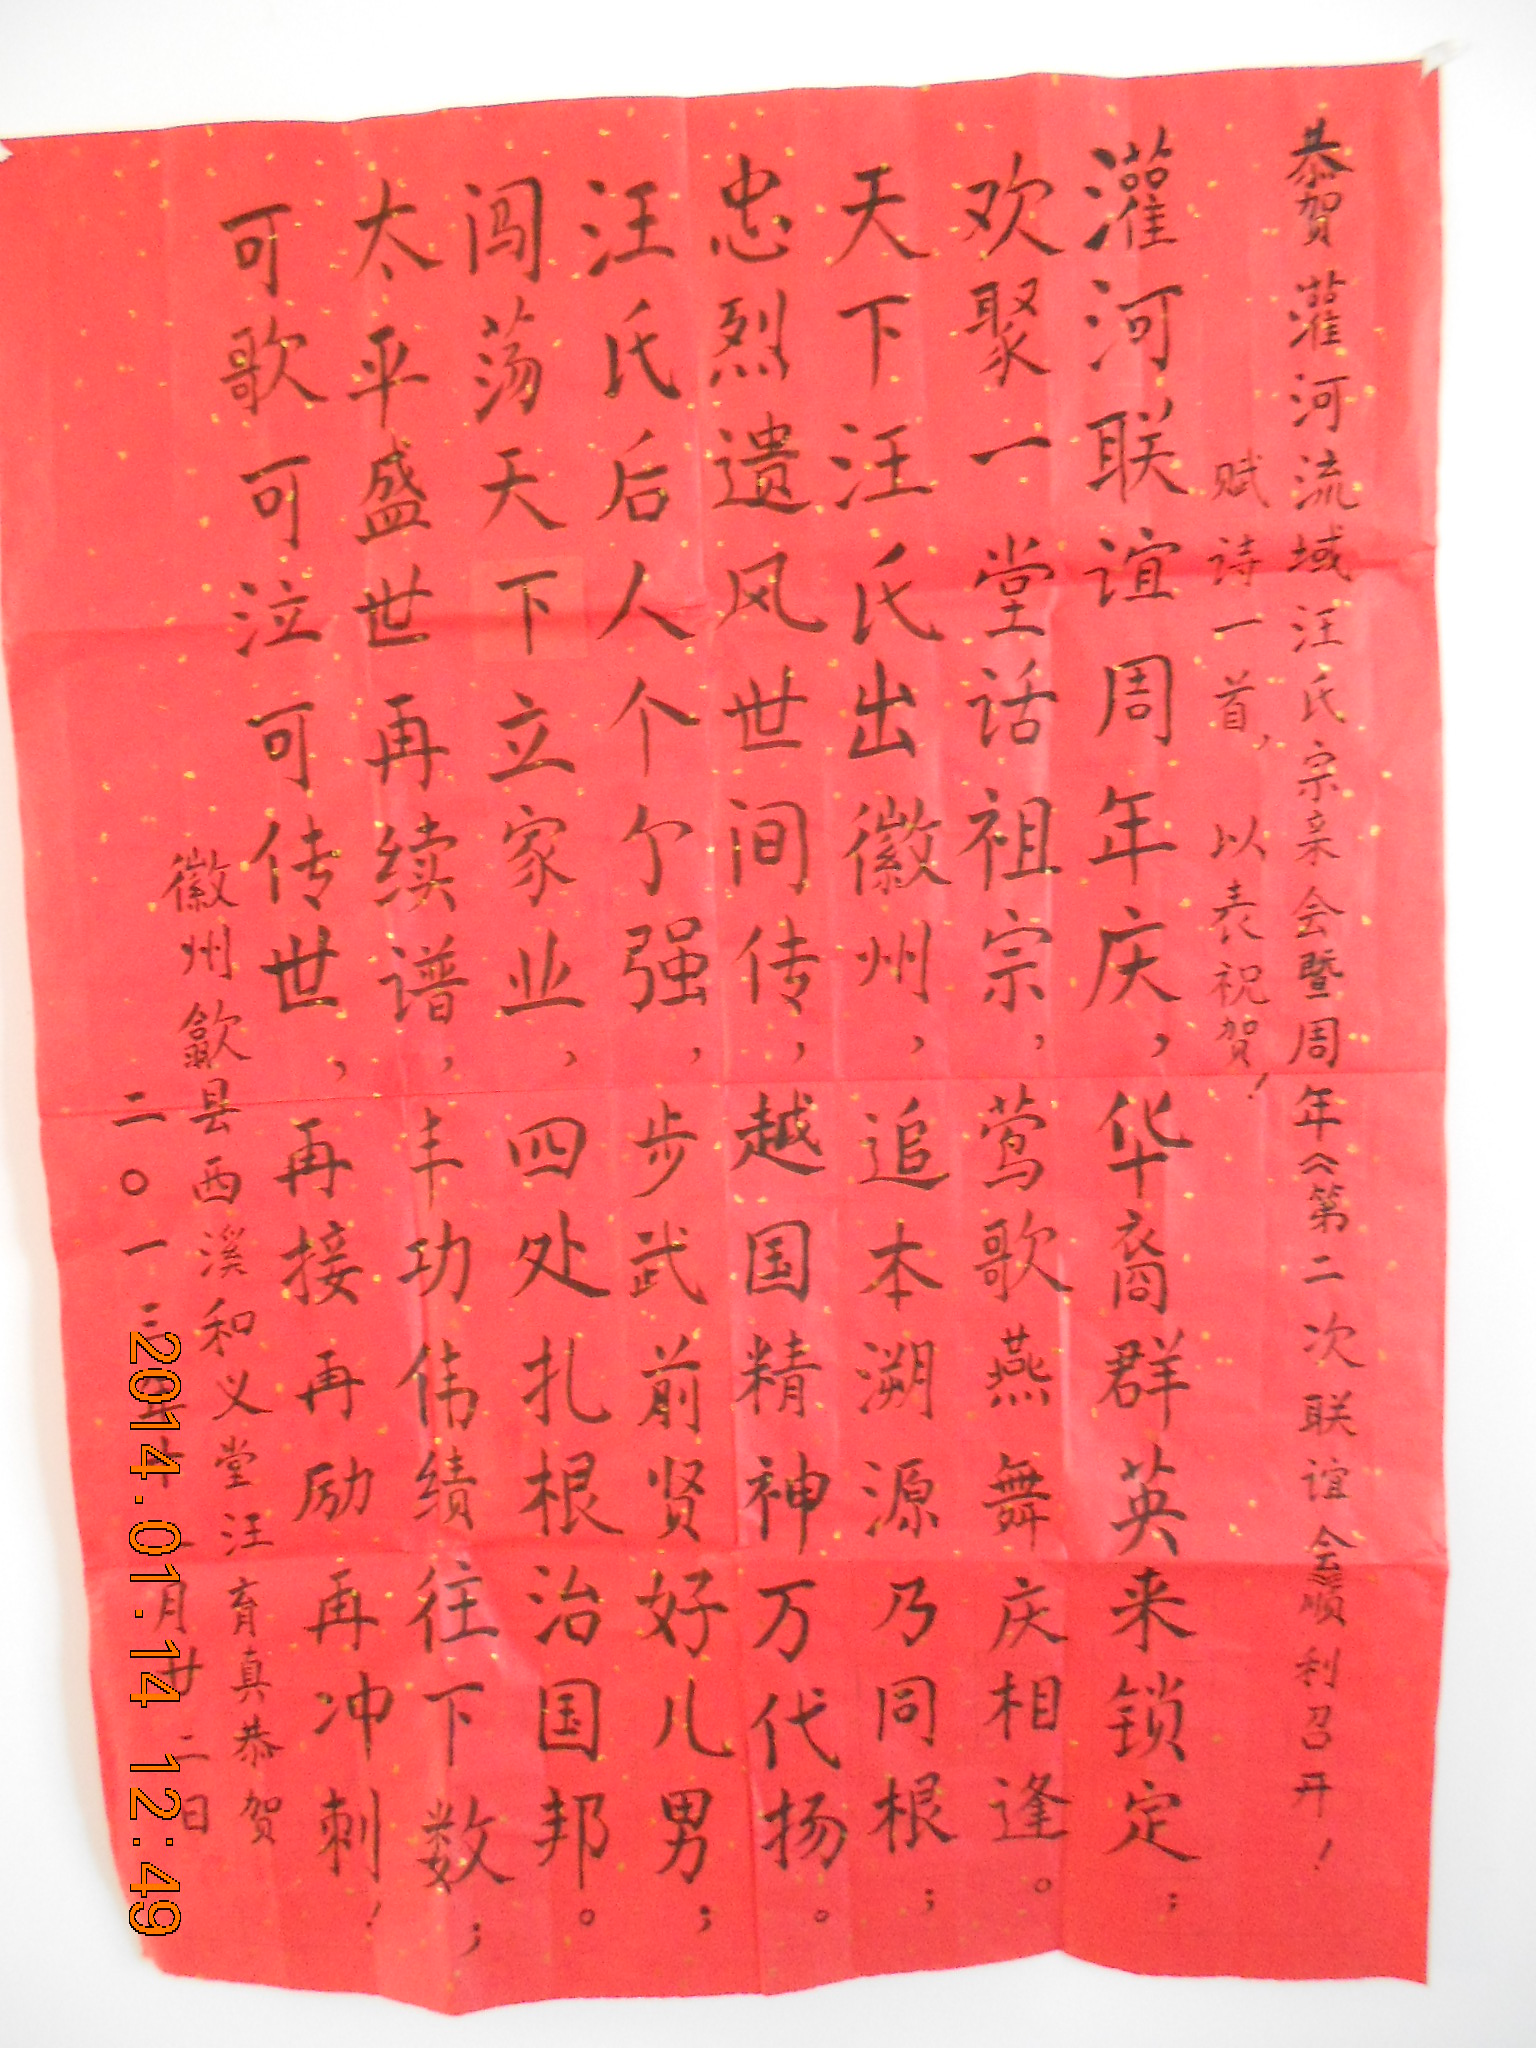 恭贺灌河流域汪氏宗亲会暨周年《第二次联谊会顺利召开！
赋诗一首，以表祝贺！
灌河联谊周年庆，华裔群英来锁定；
欢聚一堂话祖宗，莺歌燕舞庆相逢。
天下汪氏出徽州，追本溯源乃同根；
忠烈遗风世间传，越国精神万代扬。
汪氏后人个个强，步武前贤好儿男；
闯荡天下立家业，四处扎根治国邦。
太平盛世再续谱，丰功伟绩往下数；
可歌可泣可传世，再接再励再冲刺！
徽州歙县西溪和义堂汪育真恭贺
二〇一三年十一月廿二日
2014.01.14 12:49